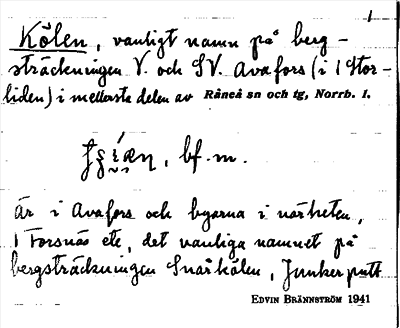 1
Kölen, vanligt namn på berg-
sträckningen V. och SV. Avafors (i 1 Stor-
liden) i mellersta delen av Råneå sn och tg, Norrb. l.
bf. m.
Är i Avafors och byarna i närheten,
1 Forsnäs etc, det vanliga namnet på
bergsträckningen Snarkölen, Junkerputt
EDVIN BRÄNNSTRÖM 1941